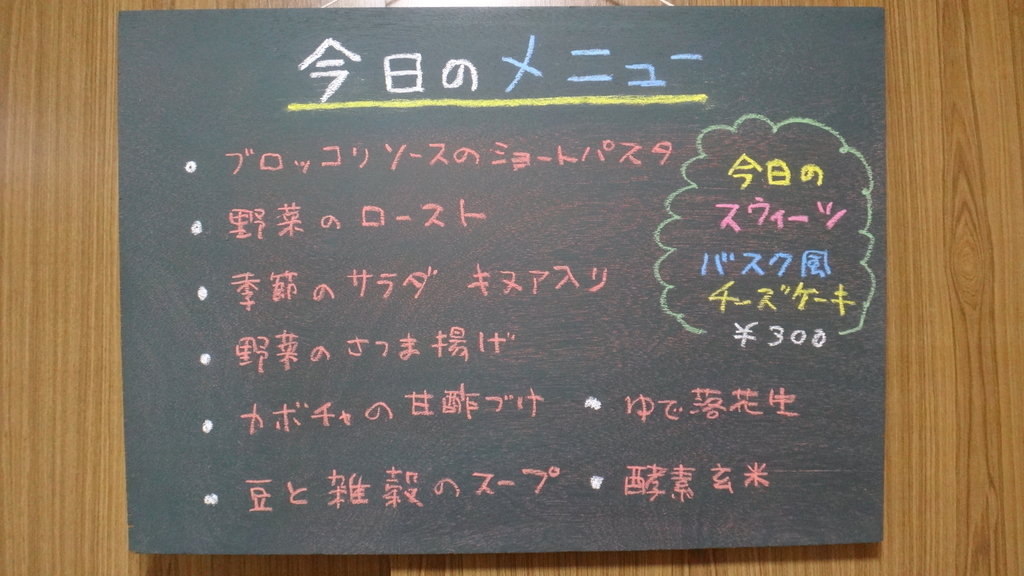 今日のメニュー
・ブロッコリソースのショートパスタ
・野菜のロースト
・季節のサラダ キヌア入り
・野菜のさつま揚げ
・カボチャの甘酢づけ
・ゆで落花生
・豆と雑穀のスープ
・酵素玄米
今日の
スウィーツ
バスク風
チーズケーキ
¥300